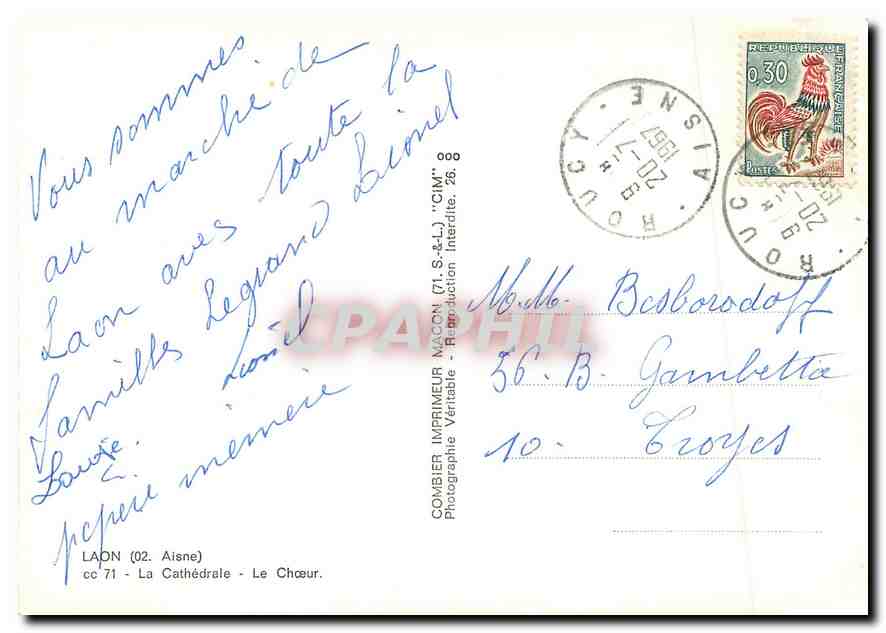 Vous sommes
au marché de
Laon aves toute la
familles Legrand Lionel
Louise. Lionel
pepeie mémeie
LAON (02. Aisne)
cc 71 - La Cathédrale - Le Chœur.
COMBIER IMPRIMEUR MACON (71. S.-&-L.) "CIM"
Photographie Véritable - Reproduction Interdite. 26.
CPAPHIL
REPUBLIQUE FRANÇAISE
0,30
POSTES
ROUCY . AISNE
6 H.
20-7
1967
ROUCY
6 H.
20-
196
M.M. Besborodoff
56. B. Gambetta
10. Troyes